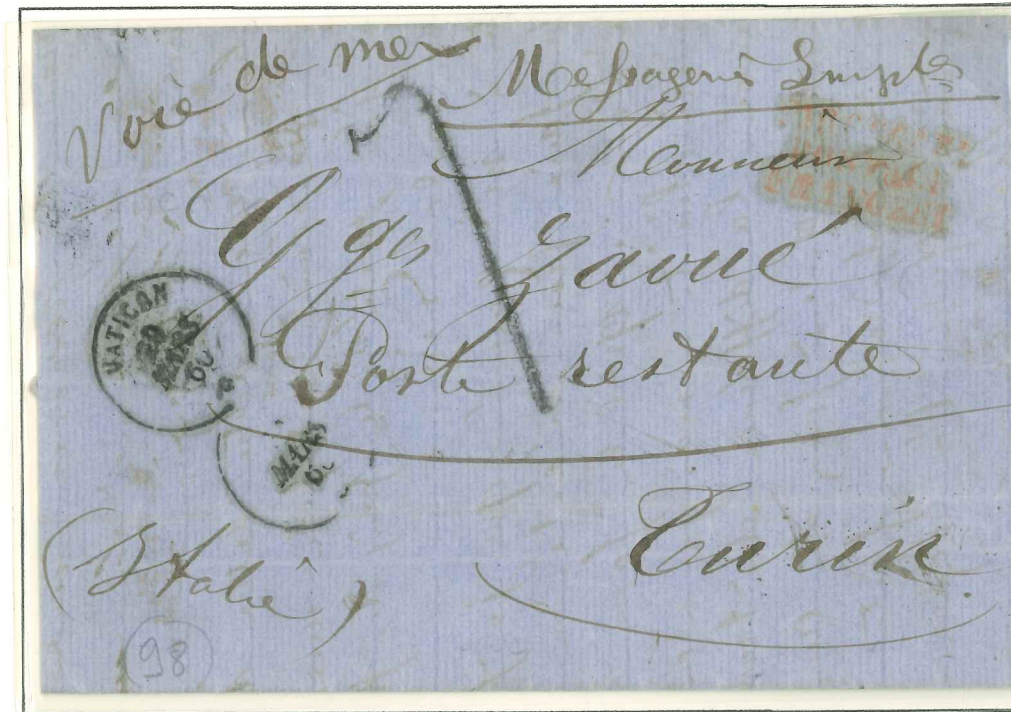 Voie de mer
Messageries Imples
Monsieur
Zaoué
Poste restante
Turin
(Italie)
VATICAN
20
MARS
60
MARS
60
98